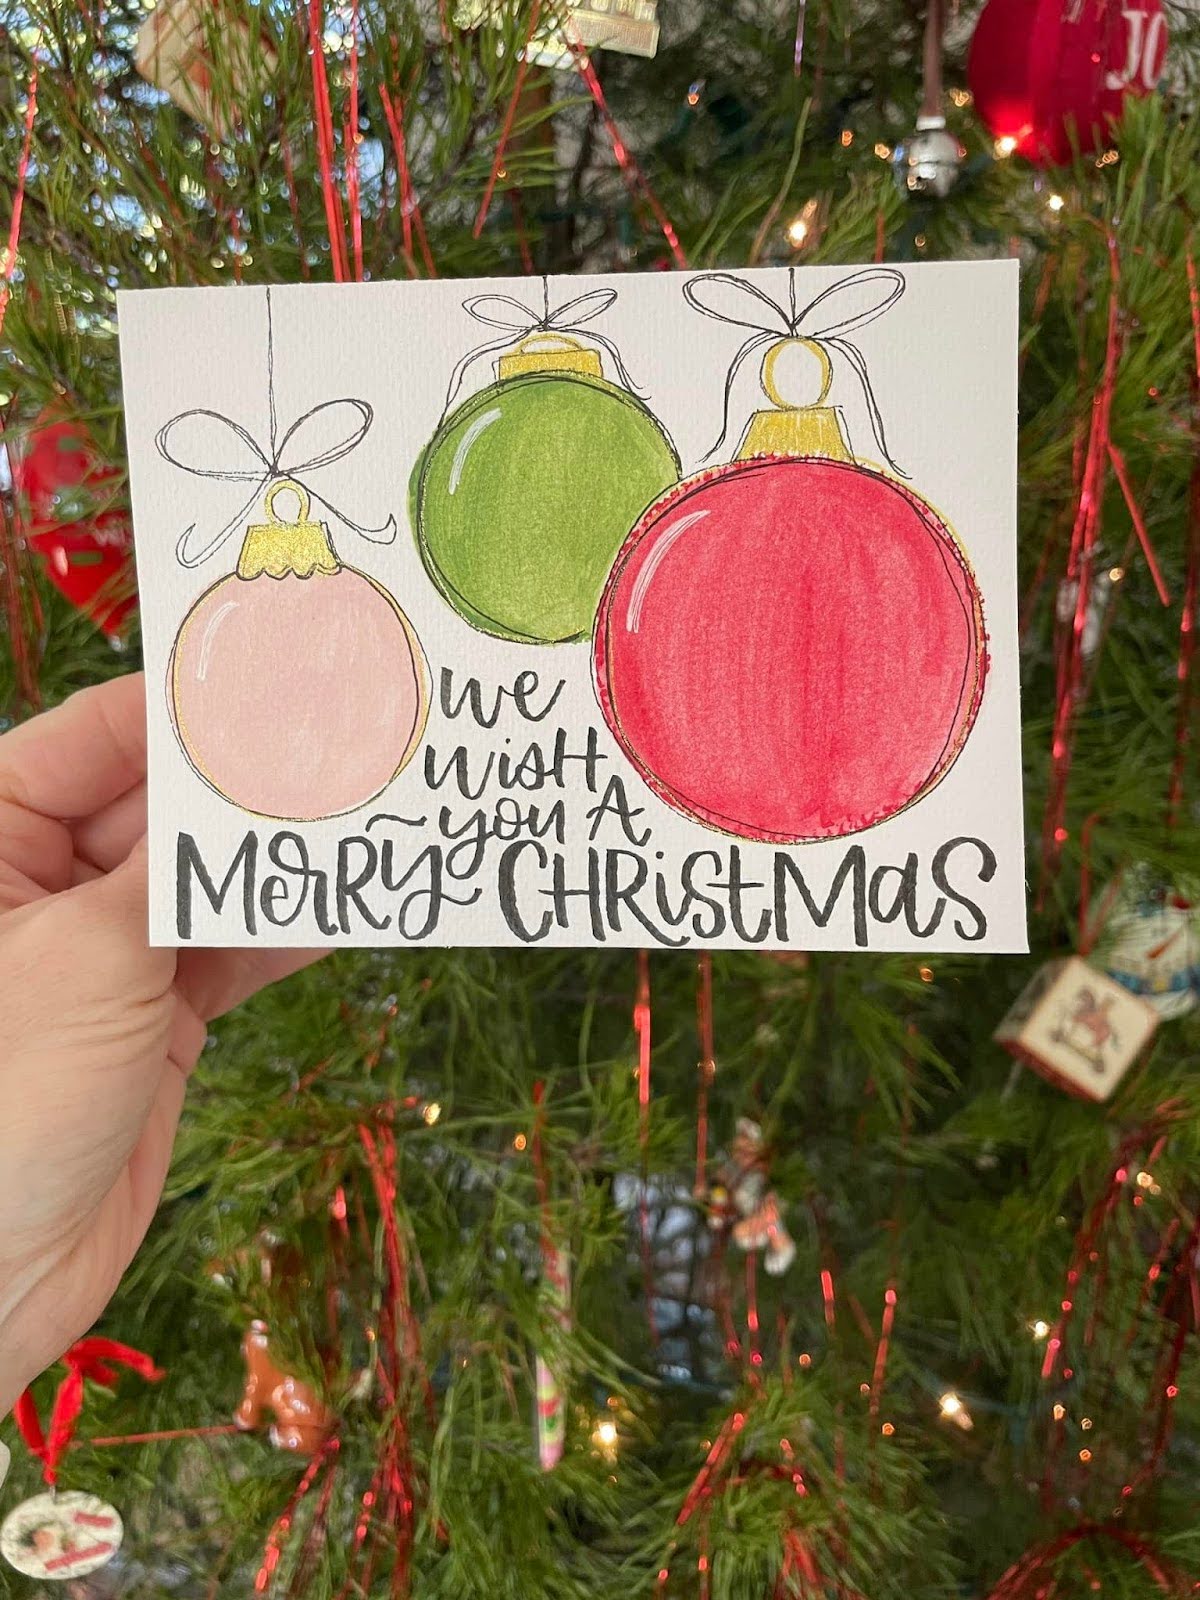 JO
we
wish
you A
Merry CHRistMas